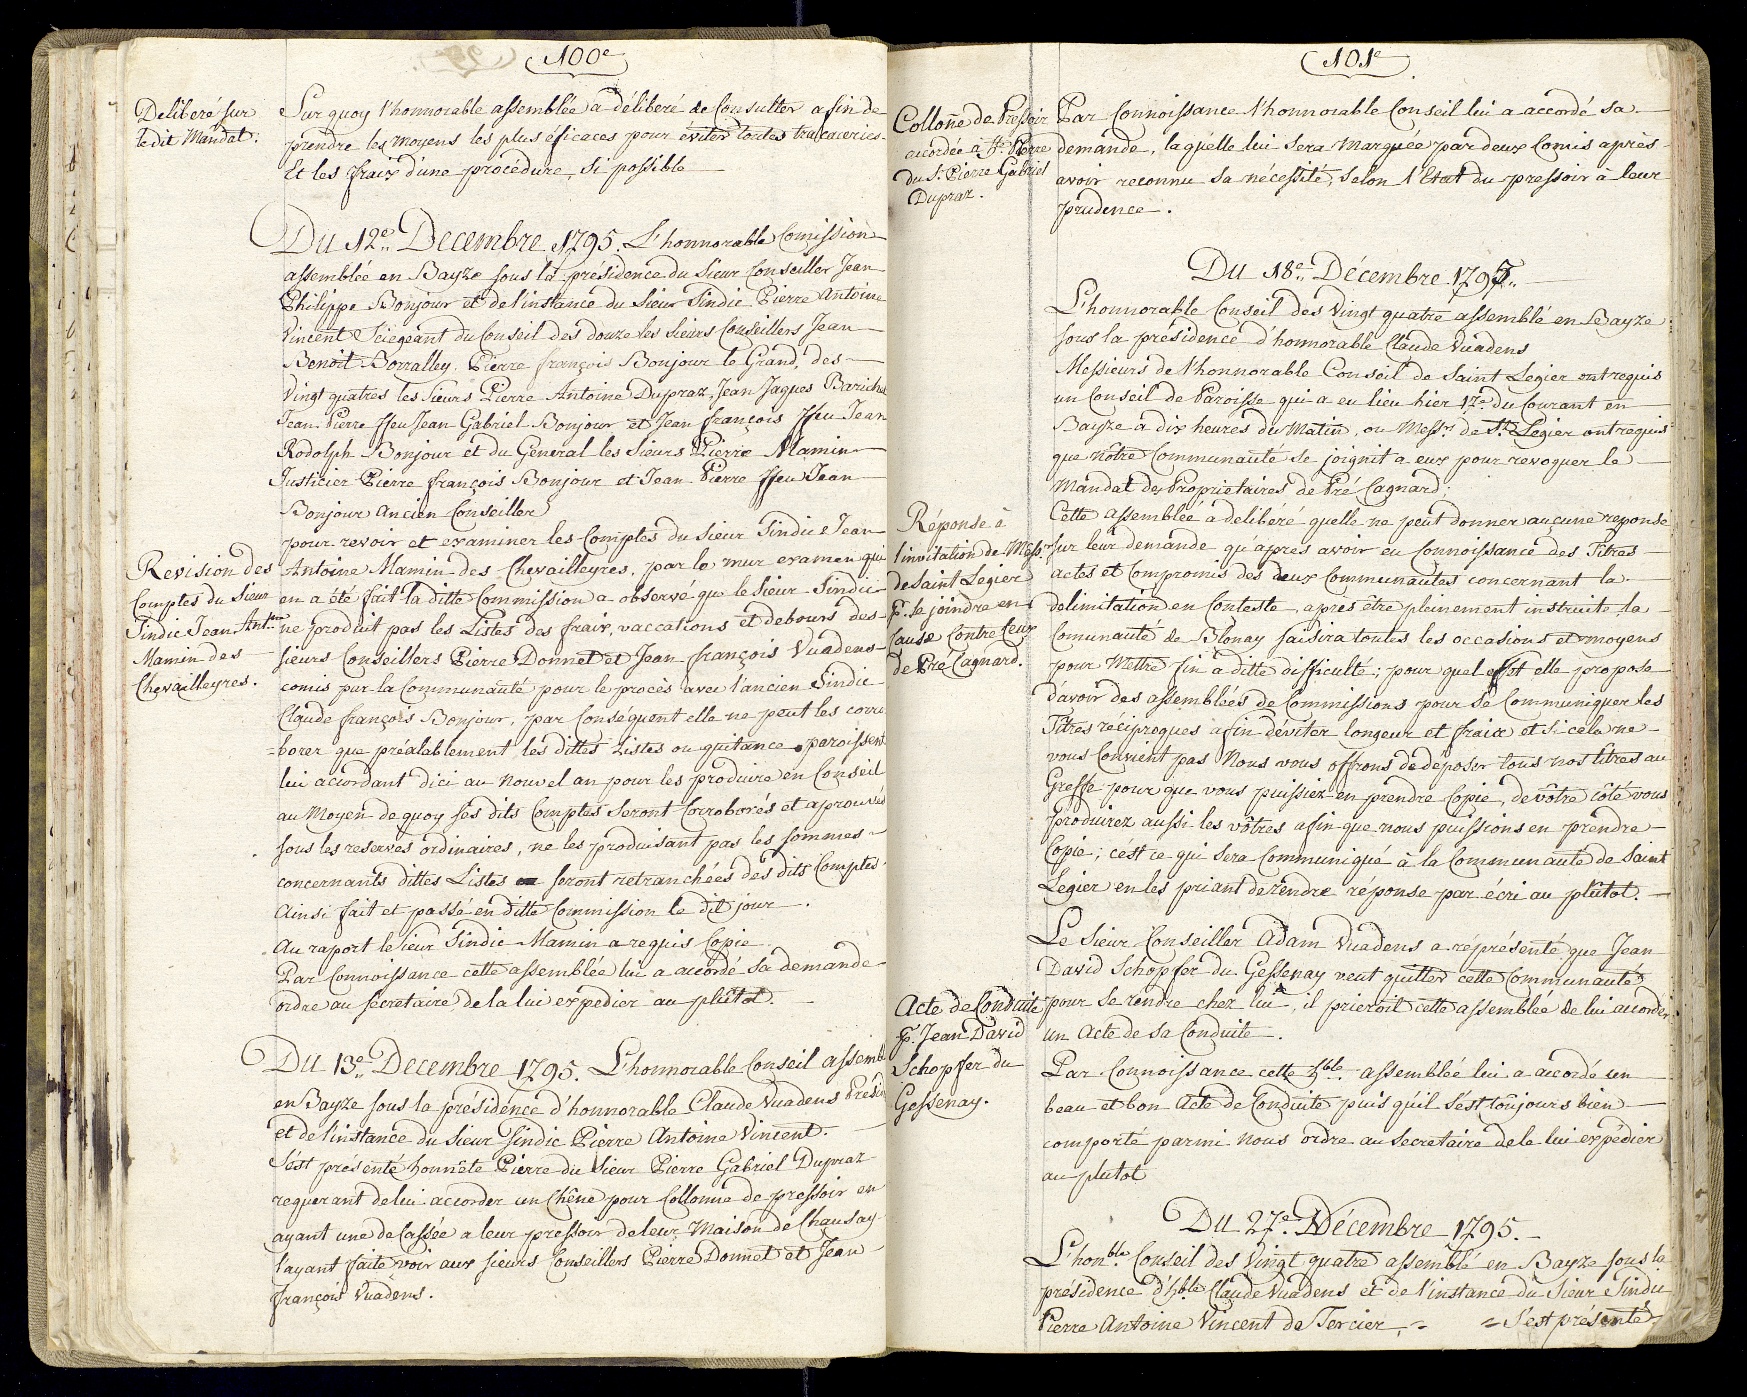 100e
Deliberé sur
le dit Mandat.
Sur quoy l'honnorable assemblée a déliberé de Consulter afin de
prendre les moyens les plus éficaces pour éviter toutes tracaceries
Et les fraix d'une procédure, si possible
Du 12e Decembre 1795. L'honnorable Comission
assemblée en Bayze sous la présidence du Sieur Conseiller Jean
Philippe Bonjour et de l'instance du Sieur Sindic Pierre Antoine
Vincent Sciegeant du Conseil des douze les Sieurs Conseillers Jean
Benoit Borralley, Pierre françois Bonjour le Grand, des
Vingt quatres les Sieurs Pierre Antoine Dupraz, Jean Jaques
Jean Pierre ffeu Jean Gabriel Bonjour et Jean françois ffeu Jean
Rodolph Bonjour et du General les Sieurs Pierre Mamin
Justicier Pierre françois Bonjour et Jean Pierre ffeu Jean
Bonjour Ancien Conseiller
pour revoir et examiner les Comptes du Sieur Sindic Jean
Revision des
Comptes du Sieur
Sindic Jean Ant.ne
Mamin des
Chevailleyres.
Antoine Mamin des Chevailleyres, par le mur examen qui
en a été fait la ditte Commission a observé que le Sieur Sindic
ne produit pas les Listes des fraix, vaccations et debours des
sieurs Conseillers Pierre Donnet et Jean françois Vuadens
comis par la Communauté pour le procès avec l'ancien Sindic
Claude françois Bonjour, par Conséquent elle ne peut les corro
=borer que préalablement les dittes Listes ou quitance paroissent
lui accordant d'ici au Nouvel an pour les produire en Conseil
au Moyen de quoy ses dits Comptes seront Corroborés et aprouvés
sous les reserves ordinaires, ne les produisant pas les sommes
concernants dittes Listes seront retranchées des dits Comptes
Ainsi fait et passé en ditte Commission le dit jour.
Au raport le Sieur Sindic Mamin a requis Copie
Par Connoissance cette assemblée lui a accordé sa demande
ordre au secretaire de la lui expedier au plûtot.
Du 13e Decembre 1795. L'honnorable Conseil assemblé
en Bayze sous la présidence d'honnorable Claude Vuadens
et de l'instance du Sieur Sindic Pierre Antoine Vincent.
S'est présenté honnête Pierre du Sieur Pierre Gabriel Dupraz
requerant de lui accorder un Chêne pour Collonne de pressoir en
ayant une de Cassée a leur pressoir de leur Maison de Chausay
l'ayant faite voir aux sieurs Conseillers Pierre Donnet et Jean
françois Vuadens.
101e
Collone de Pressoir
acordée à Hte Pierre
du Sr Pierre Gabriel
Dupraz.
Par Connoissance l'honnorable Conseil lui a accordé sa
demande, laquelle lui sera Marquée par deux Comis après
avoir reconnu sa nécessité, selon l'Etat du pressoir à leur
prudence.
Du 18e Décembre 1795.
L'honnorable Conseil des Vingt quatre assemblé en Bayze
sous la présidence d'honnorable Claude Vuadens
Messieurs de l'honnorable Conseil de Saint Legier ont requis
un Conseil de Paroisse qui a eu lieu hier 17e du Courant en
Bayze à dix heures du Matin, ou Messrs de St Legier ont requis
que nôtre Communauté se joignit a eux pour revoquer le
Mandat des Proprietaires de Pré Cagnard.
Réponse à
l'invitation de Messrs
de Saint Legier
pr se joindre en
Cause Contre Ceux
de Pré Cagnard.
Cette assemblée a deliberé quelle ne peut donner aucune reponse
sur leur demande qu'après avoir eu Connoissance des Titres
actes et Compromis des deux Communautes concernant la
delimitation en Conteste, apres être pleinement instruite la
Comunauté de Blonay saisira toutes les occasions et moyens
pour Mettre fin a ditte difficulté; pour quel effet elle propose
d'avoir des assemblées de Commissions pour se Communiquer les
Titres réciproques afin d'éviter longeur et fraix et si cela ne
vous Convient pas Nous vous offrons de deposer tous nos titres au
Greffe pour que vous puissiez en prendre Copie, de vôtre côté vous
produirez aussi les vôtres afin que nous puissions en prendre
Copie; c'est ce qui sera Communiqué à la Communauté de Saint
Legier en les priant de rendre réponse par écri au plûtot.
Le Sieur Conseiller Adam Vuadens a répresénté que Jean
David Schopfer du Gessenay veut quitter cette Communauté
Acte de Conduite
pr Jean David
Schopfer du
Gessenay.
pour se rendre chez lui, il prieroit cette assemblée de lui accorder
un Acte de sa Conduite.
Par Connoissance cette hble assemblée lui a accordé un
beau et bon Acte de Conduite puis qu'il s'est toûjours bien
comporté parmi nous ordre au Secretaire de le lui expédier
au plutot
Du 27e Décembre 1795.
L'honble Conseil des Vingt quatre assemblé en Bayze sous la
présidence d'hble Claude Vuadens et de l'instance du Sieur Sindic
Pierre Antoine Vincent de Tercier. = = S'est présenté